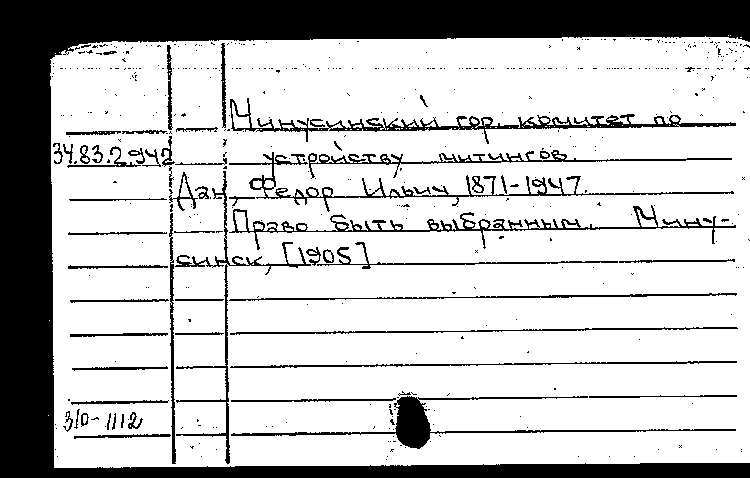 Минусинский гор. комитет по
34.83.2.942 устройству митингов.
Дан, Федор Ильич, 1871-1947.
Право быть выбранным. Мину-
синск, [1905]
3/0-1112